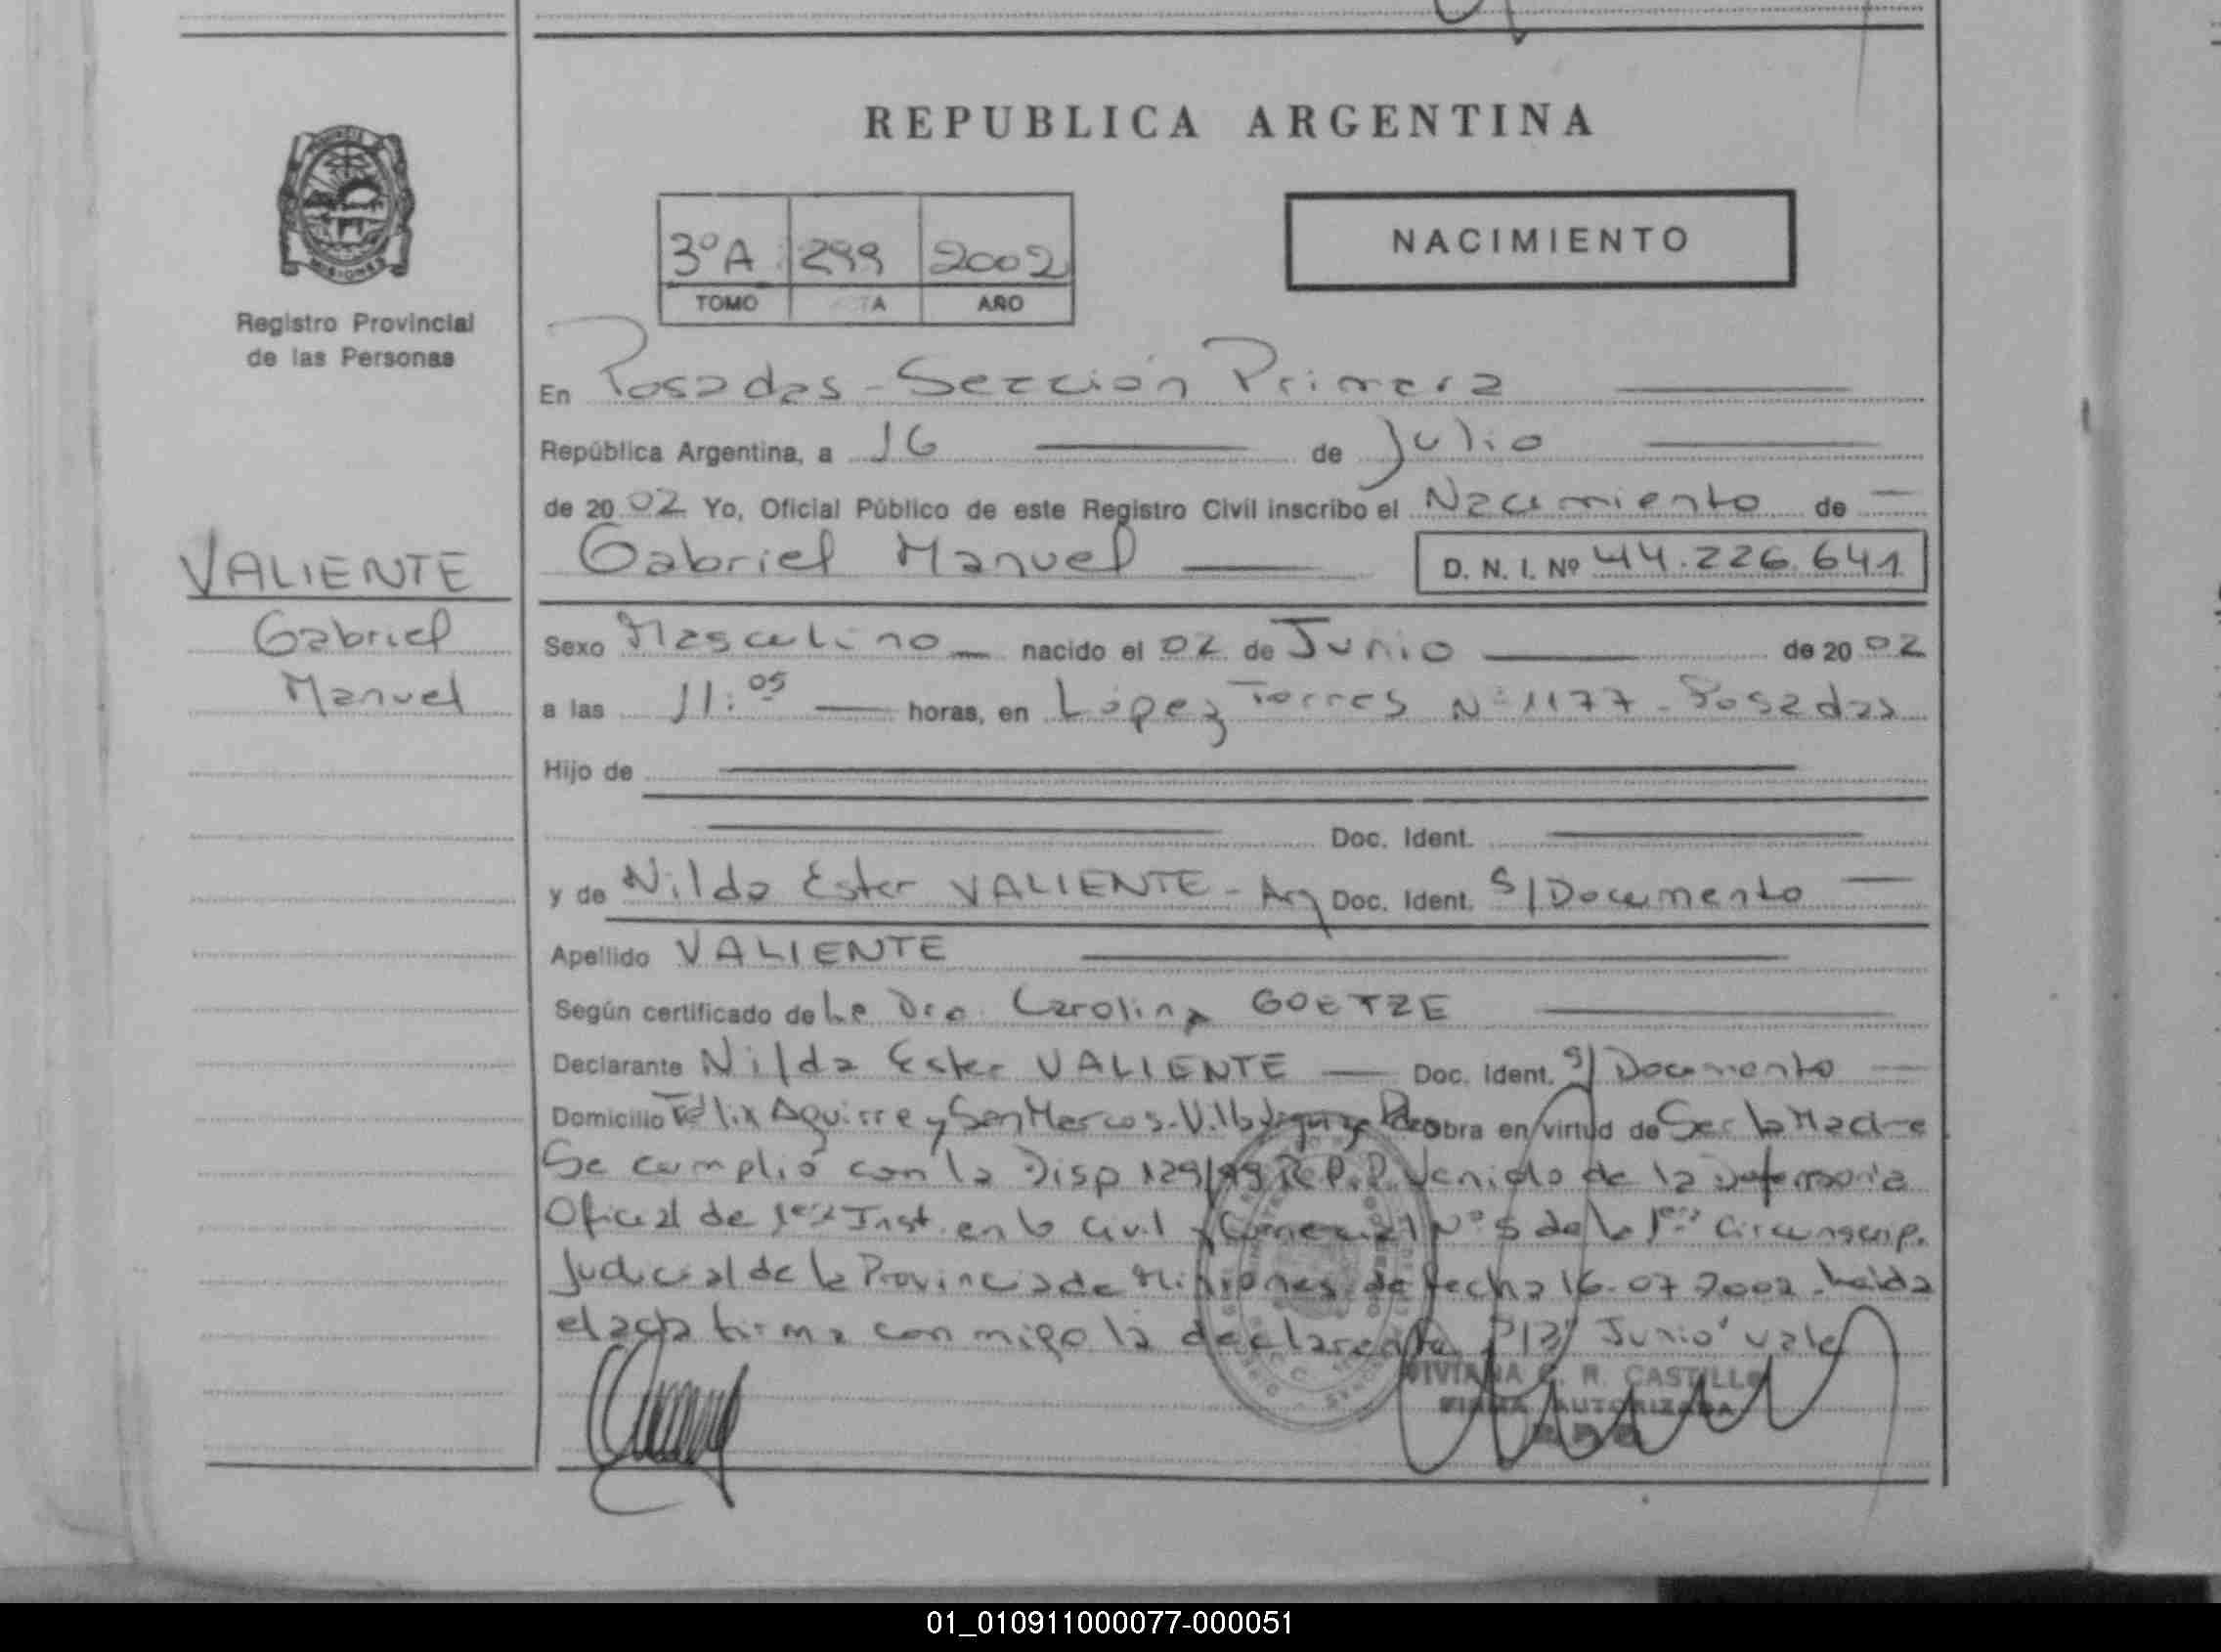 REPUBLICA ARGENTINA
MISIONES
Registro Provincial
de las Personas
3ºA 299 2002
TOMO TA AÑO
NACIMIENTO
En Posadas - Sección Primera
República Argentina, a 16 de Julio
de 2002 Yo, Oficial Público de este Registro Civil inscribo el Nacimiento de
Gabriel Manuel D. N. I. Nº 44.226.641
VALIENTE
Gabriel
Manuel
Sexo Masculino nacido el 02 de Junio de 2002
a las 11:05 horas, en López Torres Nº 1177 - Posadas
Hijo de
Doc. Ident.
y de Nilda Ester VALIENTE - Arg Doc. Ident. S/Documento
Apellido VALIENTE
Según certificado de La Dra. Carolina GOETZE
Declarante Nilda Ester VALIENTE Doc. Ident. S/Documento
Domicilio Félix Aguirre y San Marcos - Villa Obra en virtud de Ser la Madre
Se cumplió con la Disp 129/99 R.P.P. Venido de la Defensoria
Oficial de 1era Inst. en lo Civil y Comercial Nº 5 de la 1era Circunscrip.
Judicial de la Provincia de Misiones de fecha 16-07-2002. Leída
el acta firma conmigo la declarante. "Junio" vale
VIVIANA R. CASTILLO
FIRMA AUTORIZADA
01_010911000077-000051